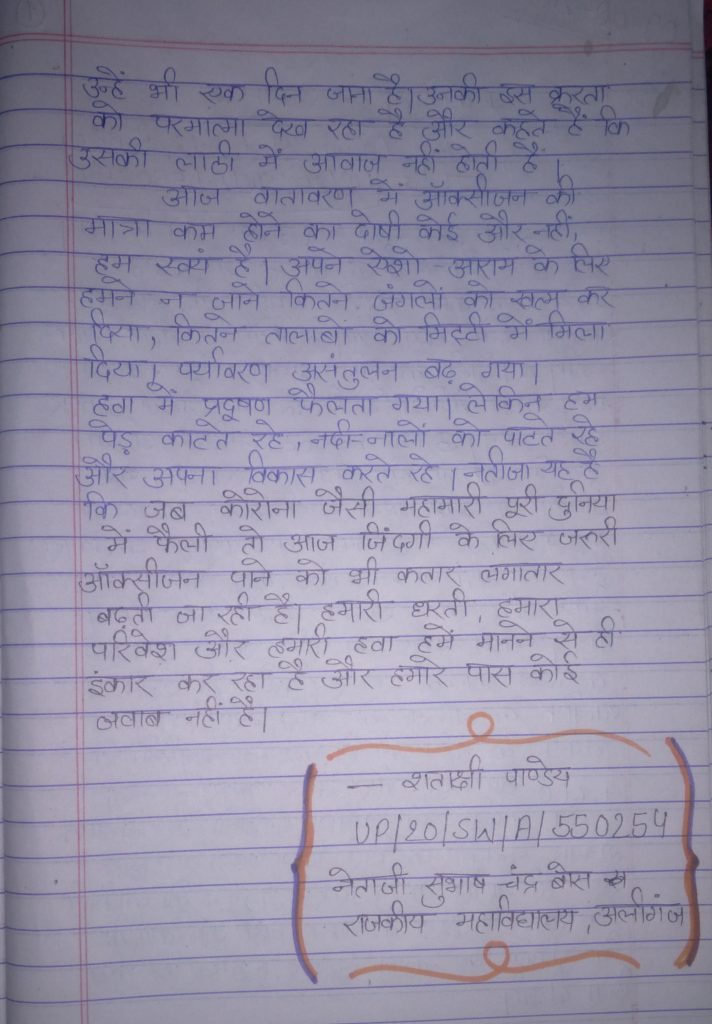 उन्हें भी एक दिन जाना है। उनकी इस क्रूरता
को परमात्मा देख रहा है और कहते हैं कि
उसकी लाठी में आवाज नहीं होती है।
आज वातावरण में ऑक्सीजन की
मात्रा कम होने का दोषी कोई और नहीं,
हम स्वयं है। अपने ऐशो-आराम के लिए
हमने न जाने कितने जंगलों को खत्म कर
दिया, कितने तालाबों को मिट्टी में मिला
दिया। पर्यावरण असंतुलन बढ़ गया।
हवा में प्रदूषण फैलता गया। लेकिन हम
पेड़ काटते रहे, नदी-नालों को पाटते रहे
और अपना विकास करते रहे। नतीजा यह है
कि जब कोरोना जैसी महामारी पूरी दुनिया
में फैली तो आज जिंदगी के लिए जरुरी
ऑक्सीजन पाने को भी कतार लगातार
बढ़ती जा रही है। हमारी धरती, हमारा
परिवेश और हमारी हवा हमें मानने से ही
इंकार कर रहा है और हमारे पास कोई
जवाब नहीं है।
— शताक्षी पाण्डेय
UP/20/SW/A/550254
नेताजी सुभाष चंद्र बोस
राजकीय महाविद्यालय, अलीगंज